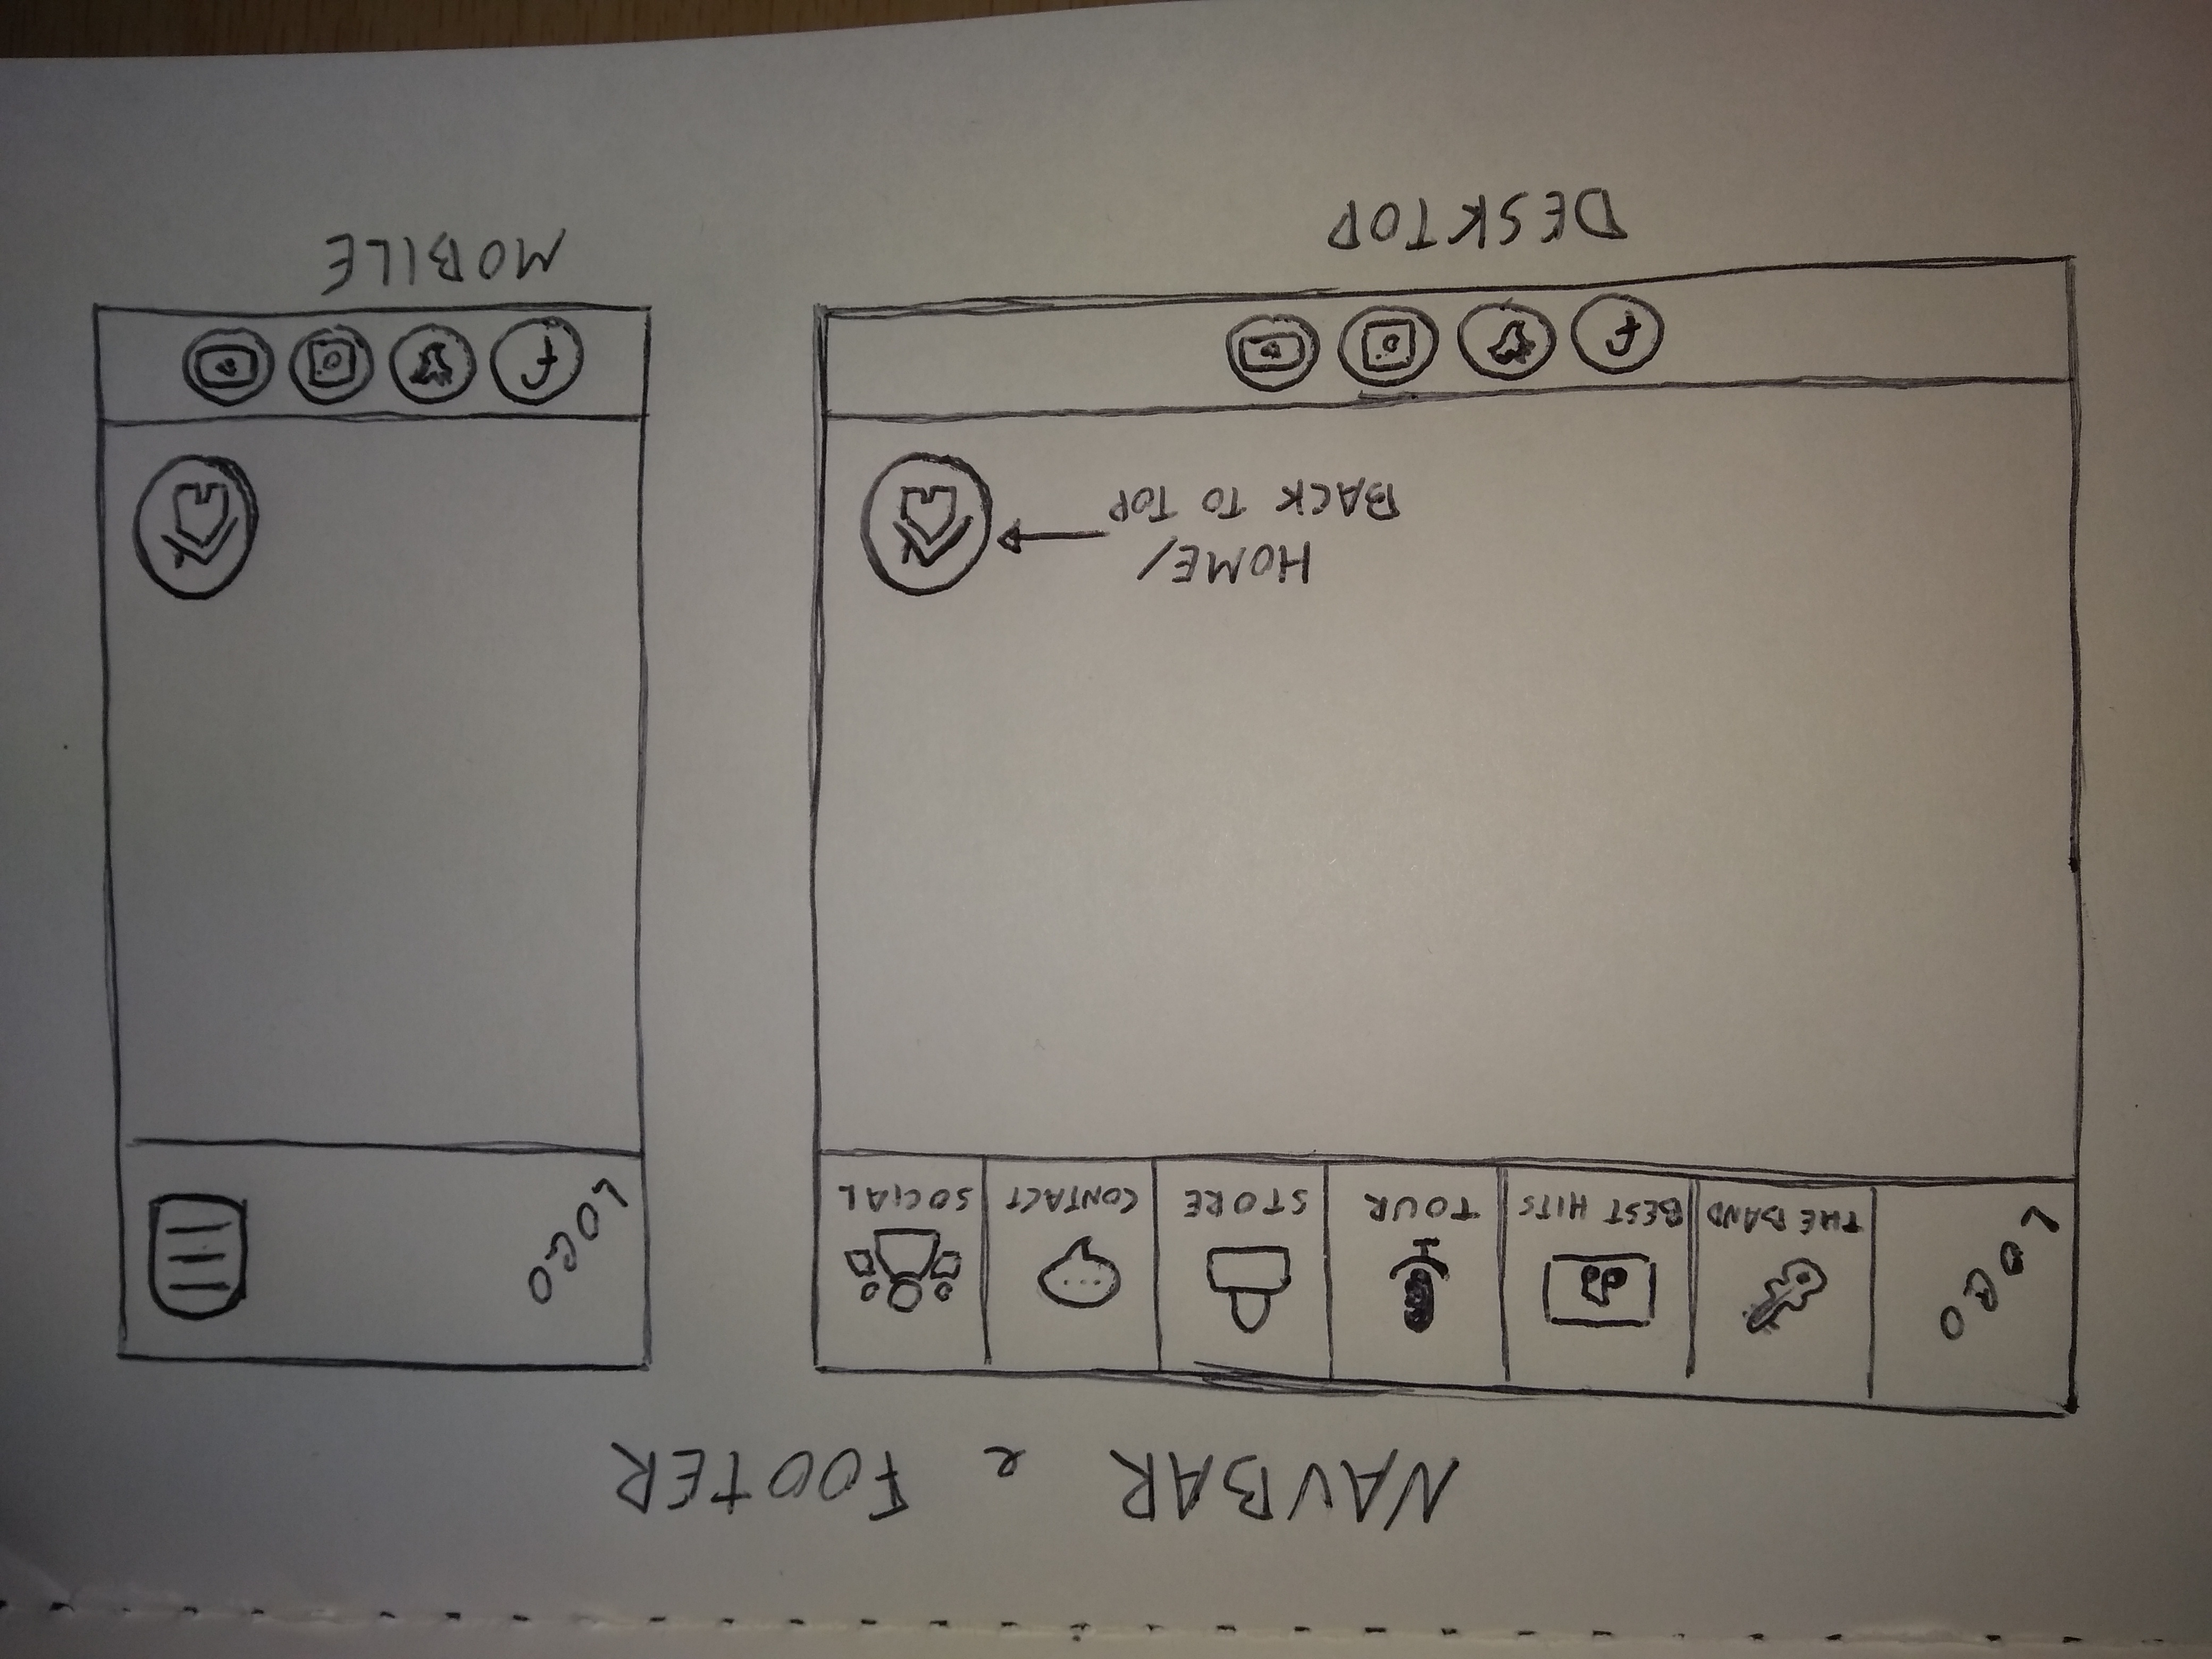 NAVBAR e FOOTER
LOGO
THE BAND
BEST HITS
TOUR
STORE
CONTACT
SOCIAL
LOGO
HOME/
BACK TO TOP
f
f
DESKTOP
MOBILE